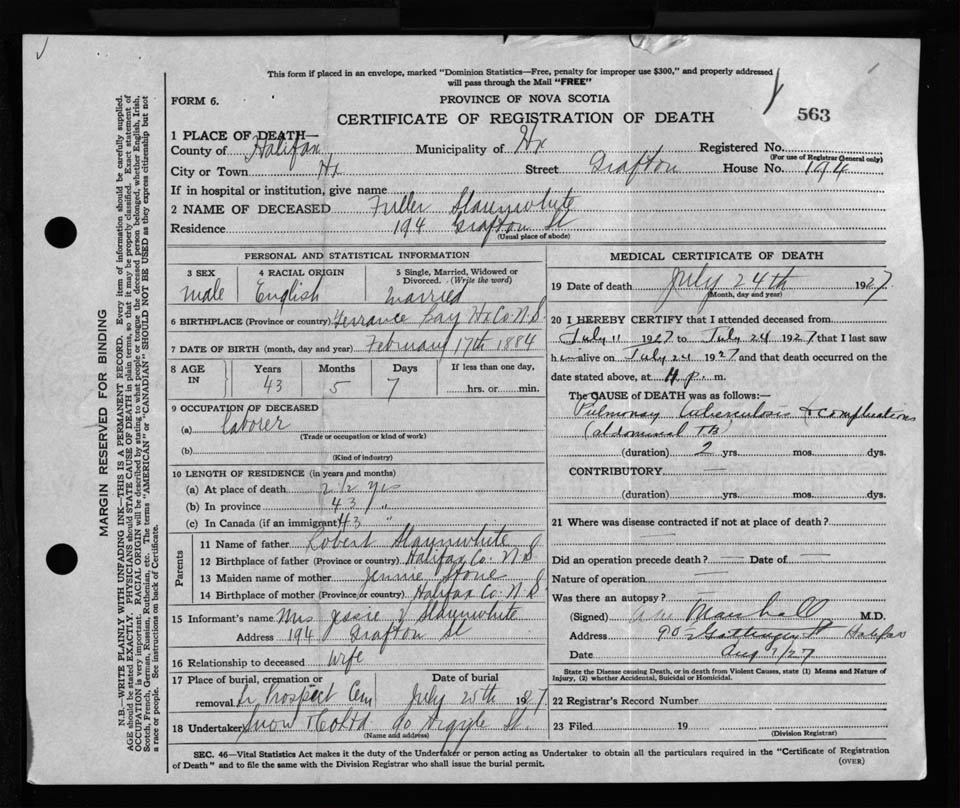 This form if placed in an envelope, marked "Dominion Statistics—Free, penalty for improper use $300," and properly addressed
will pass through the Mail "FREE"
FORM 6.
PROVINCE OF NOVA SCOTIA
CERTIFICATE OF REGISTRATION OF DEATH
563
1 PLACE OF DEATH—
County of Halifax Municipality of Hx Registered No.
(For use of Registrar General only)
City or Town Hx Street Grafton House No. 194
If in hospital or institution, give name
2 NAME OF DECEASED Fuller Slaunwhite
Residence 194 Grafton St
(Usual place of abode)
PERSONAL AND STATISTICAL INFORMATION
3 SEX 4 RACIAL ORIGIN 5 Single, Married, Widowed or
Divorced. (Write the word)
male English married
6 BIRTHPLACE (Province or country) Terrance Bay Hx Co. N.S.
7 DATE OF BIRTH (month, day and year) February 17th 1884
8 AGE IN Years Months Days If less than one day,
43 5 7 hrs. or min.
9 OCCUPATION OF DECEASED
(a) laborer
(Trade or occupation or kind of work)
(b)
(Kind of industry)
10 LENGTH OF RESIDENCE (in years and months)
(a) At place of death 2 1/2 yrs
(b) In province 43 "
(c) In Canada (if an immigrant) 43 "
Parents
11 Name of father Robert Slaunwhite
12 Birthplace of father (Province or country) Halifax Co. N S
13 Maiden name of mother Jennie Stone
14 Birthplace of mother (Province or country) Halifax Co. N S
15 Informant's name Mrs Jessie V Slaunwhite
Address 194 Grafton St
16 Relationship to deceased wife
17 Place of burial, cremation or Date of burial
removal Prospect Cem July 25th 1927
18 Undertaker Snow & Co Ltd 90 Argyle St.
(Name and address)
MEDICAL CERTIFICATE OF DEATH
19 Date of death July 24th 1927
(Month, day and year)
20 I HEREBY CERTIFY that I attended deceased from
July 11 1927 to July 24 1927 that I last saw
him alive on July 24 1927 and that death occurred on the
date stated above, at 4 p. m.
The CAUSE of DEATH was as follows:
Pulmonary tuberculosis & complications
(abdominal TB)
(duration) 2 yrs. mos. dys.
CONTRIBUTORY —
(duration) yrs. mos. dys.
21 Where was disease contracted if not at place of death?
—
Did an operation precede death? — Date of —
Nature of operation —
Was there an autopsy? —
(Signed) Marshall M.D.
Address 90 Gottingen St Halifax
Date Aug 1/27
State the Disease causing Death, or in death from Violent Causes, state (1) Means and Nature of
Injury, (2) whether Accidental, Suicidal or Homicidal.
22 Registrar's Record Number
23 Filed 19
(Division Registrar)
SEC. 46—Vital Statistics Act makes it the duty of the Undertaker or person acting as Undertaker to obtain all the particulars required in the "Certificate of Registration
of Death" and to file the same with the Division Registrar who shall issue the burial permit.
(OVER)
MARGIN RESERVED FOR BINDING
N.B.—WRITE PLAINLY WITH UNFADING INK—THIS IS A PERMANENT RECORD. Every item of information should be carefully supplied.
AGE should be stated EXACTLY. PHYSICIANS should STATE CAUSE OF DEATH in plain terms, so that it may be properly classified. Exact statement of
OCCUPATION is very important. RACIAL ORIGIN will be described by stating to what people or tongue the deceased person belonged, whether English, Irish,
Scotch, French, German, Russian, Ruthenian, etc. The terms "AMERICAN" or "CANADIAN" SHOULD NOT BE USED as they express citizenship but not
a race or people. See instructions on back of Certificate.